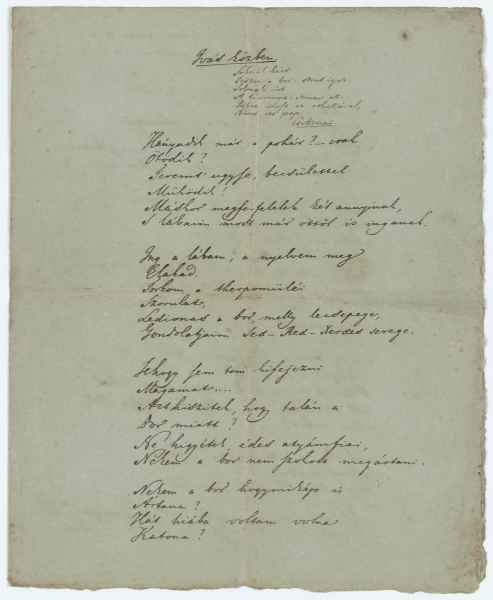 Ivás közben
Sokat használ
Hiszen a bor
Csokonai
Hányadik már a pohár?... csak
Ötödik?
Teremt ugyse, becsülettel
Működik!
Máskor megfe-felelek két annyinak,
S lábaim most már öttől is inganak.
Ing a lábam, a nyelvem meg
Elakad.
Torkom a thermopÿléi
Szorulat,
Leonidas a bor, melly lecsepege,
Gondolatjaim Xed-Red-Xerxes serege.
Sehogy sem tom kifejezni
Magamat....
Azt hiszitek, hogy talán a
Bor miatt?
Ne higyjétek, édes atyámfiai,
Nekem a bor nem szokott megártani.
Nekem a bor hogymikép is
Ártana?
Hát hiába voltam volna
Katona?